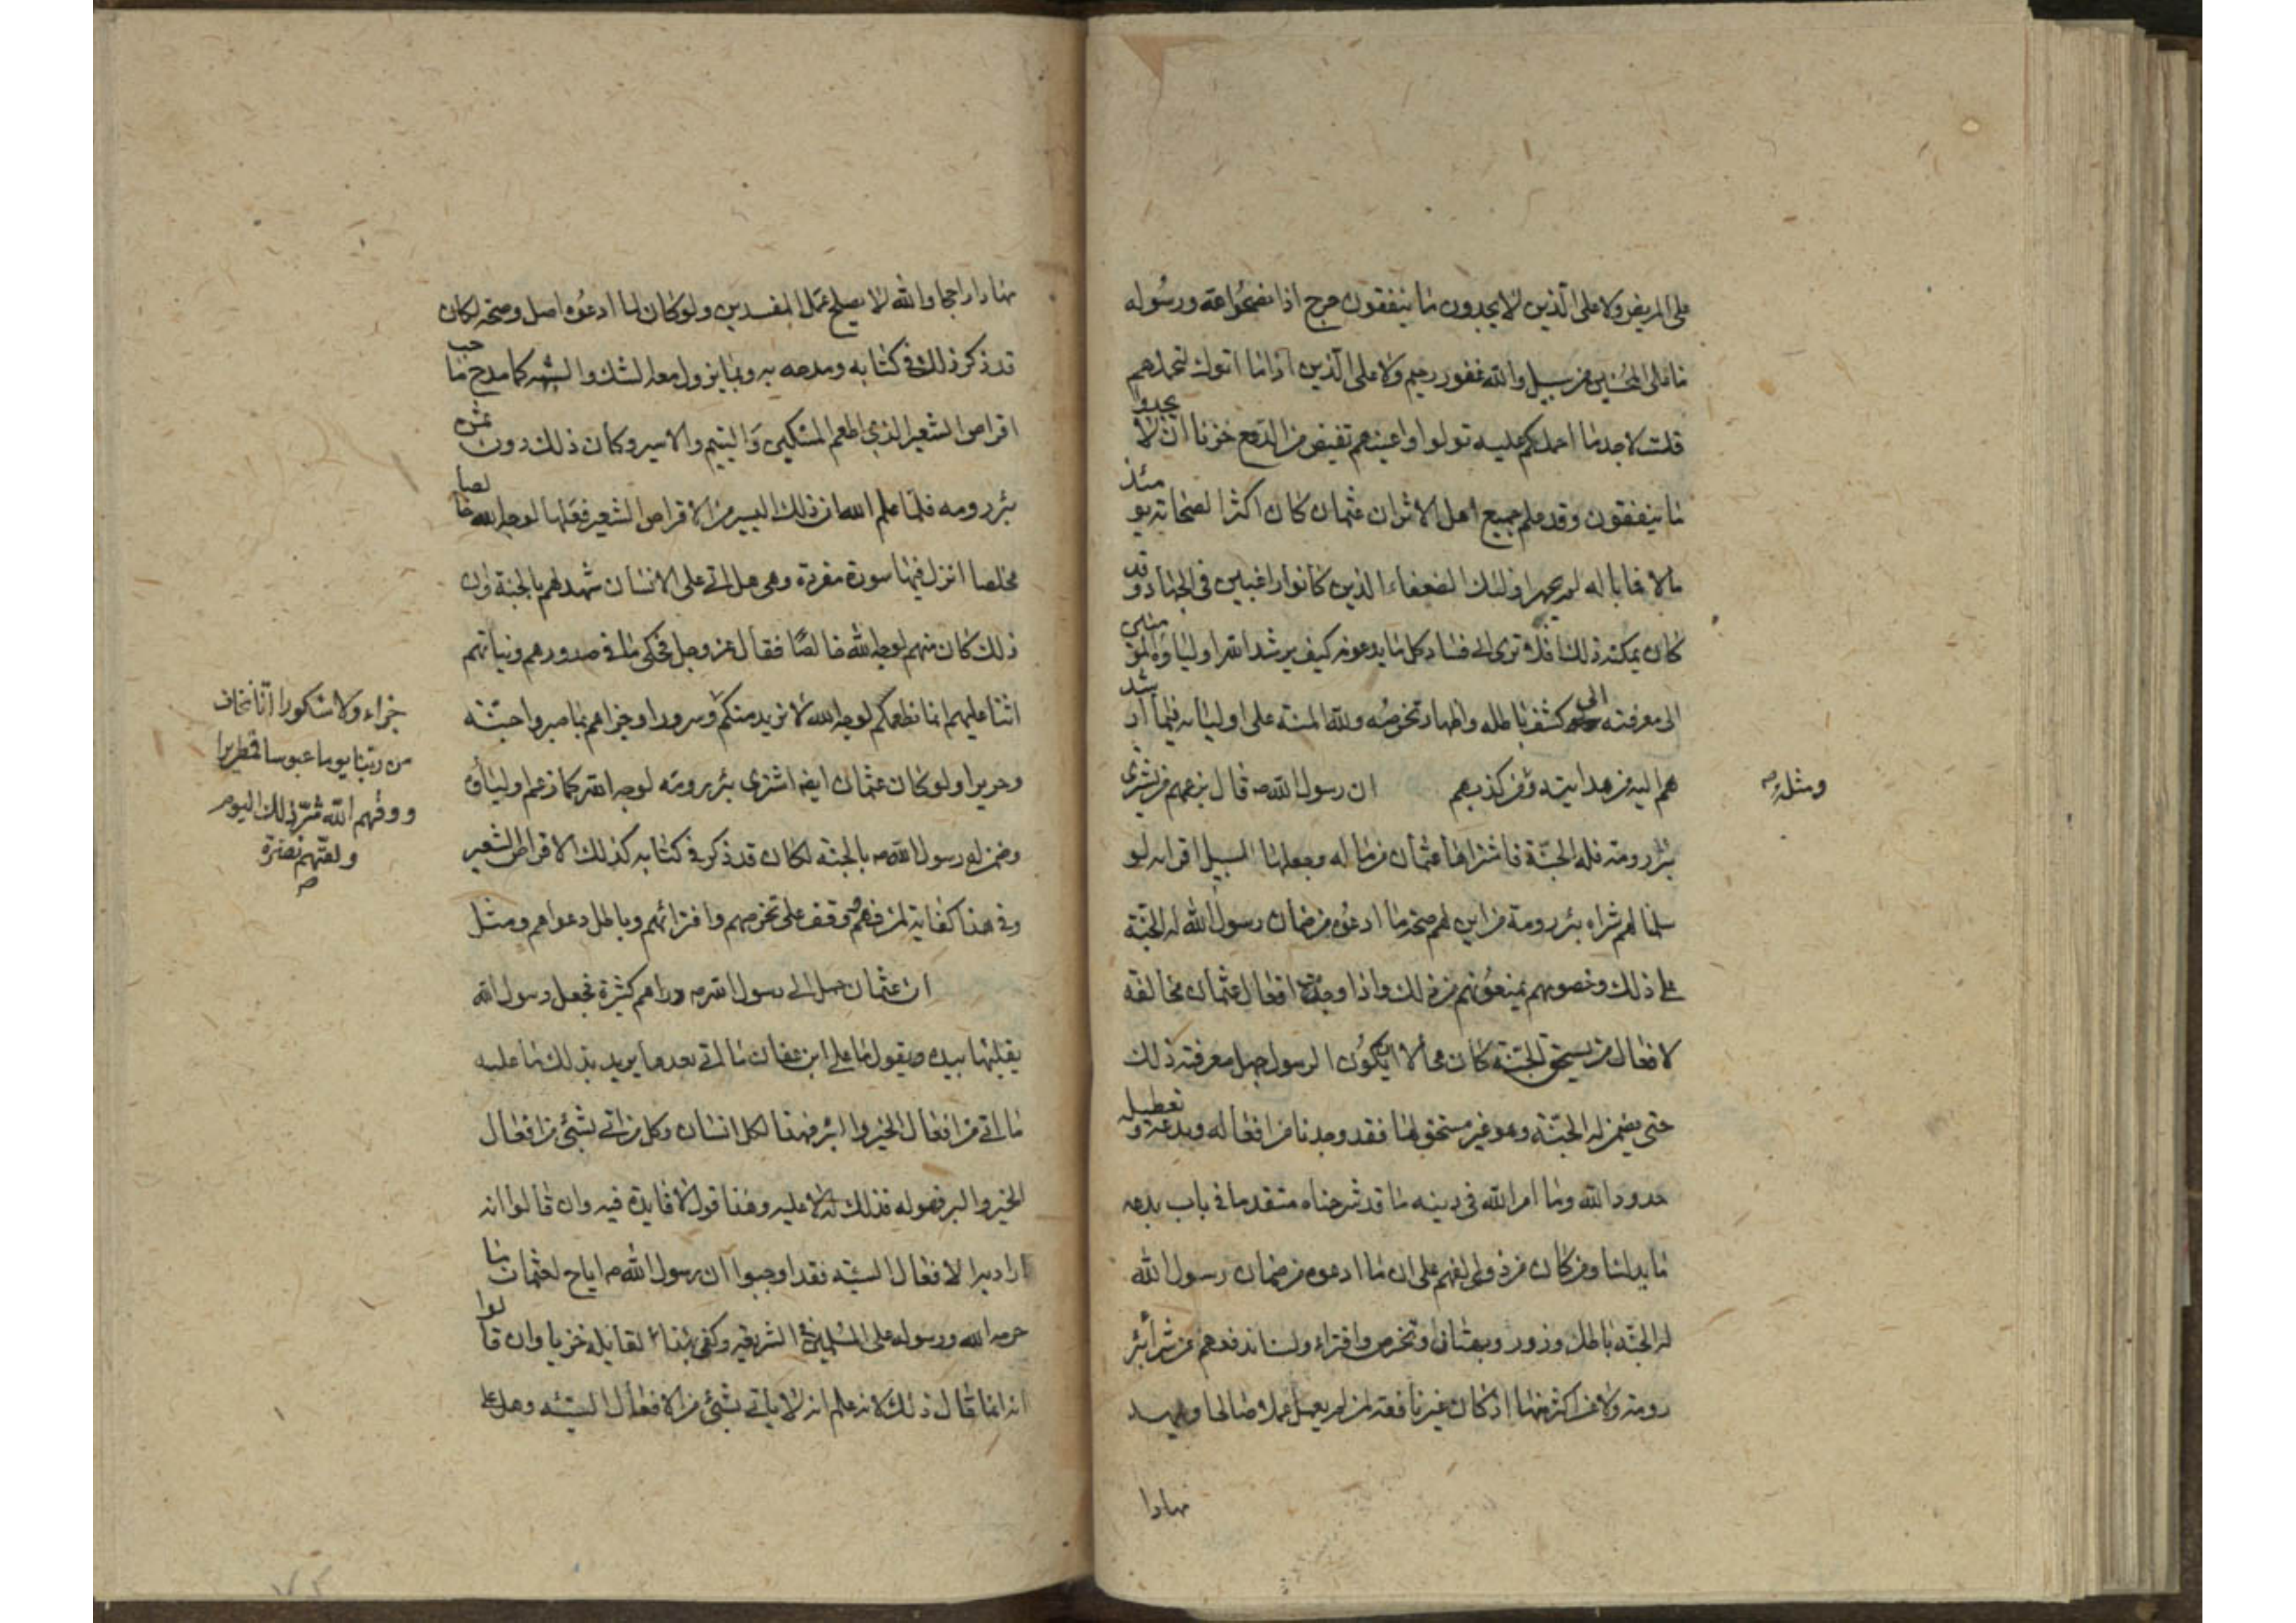 على المريض ولا على الذين لا يجدون ما ينفقون حرج اذا نصحوا لله ورسوله
ما على المحسنين من سبيل والله غفور رحيم ولا على الذين اذا ما اتوك لتحملهم
قلت لا اجد ما احملكم عليه تولوا واعينهم تفيض من الدمع حزنا ان لا يجدوا
ما ينفقون وقد علم جميع اهل الاثر ان عثمان كان اكثر الصحابة يومئذ
مالا فما باله لم يجهز اولئك الضعفاء الذين كانوا راغبين في الجهاد وقد
كان يمكنه ذلك فلا ترى الى فساد كل ما يدعونه كيف يرشد الله اولياؤه المؤمنين
الى معرفته الى كشف باطله واظهار تخرصه ولله المنة على اوليائه فيما ارشد
هم اليه من هدايته ومن كذبهم ان رسول الله ص قال بزعمهم من يشترى
ومثله ص
بئر رومة فله الجنة فاشتراها عثمان من ماله وجعلها السبيل افرايه لو
سلمنا لهم شراه بئر رومة من اين لهم صحة ما ادعوه من ضمان رسول الله له الجنة
على ذلك وخصومهم يمنعونهم من ذلك واذا وجدت افعال عثمان مخالفة
لافعال من يستحق الجنة كان محالا ان يكون الرسول جهل معرفة ذلك
حتى يضمن له الجنة وهو غير مستحق لها فقد وجدنا من افعاله وبدعه وتعطيله
حدود الله وما امر الله في دينه ما قد شرحناه متقدما في باب بدعه
ما يدلنا ومن كان من ذوى الفهم على ان ما ادعوه من ضمان رسول الله
له الجنة باطل وزور وبهتان وتخرص وافتراء ولسنا ندفعهم عن شرا بئر
رومة ولا عن اكثر منها اذ كان غير نافعة لمن لم يعمل عملا صالحا
نهادا
راجحا والله لا يصلح عمل المفسدين ولو كان لما ادعوه اصل وصحة لكان
قد ذكر ذلك في كتابه ومدحه به وبما يزول معه الشك والشبه كما مدح صاحب
اقراص الشعير الذي اطعم المسكين واليتيم والاسير وكان ذلك دون ثمن
بئر رومه فلما علم الله ان ذلك اليسير من الاقراص الشعير فعلها لوجه الله خالصا
مخلصا انزل فيها سورة مفردة وهي هل اتى على الانسان شهد لهم بالجنة وان
ذلك كان منهم لوجه الله خالصا فقال عز وجل فحكى ما في صدورهم ونياتهم
اثنا عليهم انما نطعمكم لوجه الله لا نريد منكم وسرورا وجزاهم بما صبروا جنة
جزاء ولا شكورا انا نخاف
من ربنا يوما عبوسا قمطريرا
ووقهم الله شر ذلك اليوم
ولقتهم نضرة
ص
وحريرا ولو كان عثمان ايضا اشترى بئر رومة لوجه الله كما زعم اولياؤه
وضمن له رسول الله ص بالجنة لكان قد ذكر في كتابه كذلك الاقراص الشعير
وفي هذا كفاية لمن فهم ووقف على تخرصهم وافترائهم وباطل دعواهم ومثل
ان عثمان حمل الى رسول الله ص دراهم كثيرة فجعل رسول الله
يقلبها بيده ويقول ما على ابن عفان ما اتى بعدها يريد بذلك ما عليه
ما اتى من افعال الخير والبر فهذا لكل انسان وكل من اتى بشئ من افعال
الخير والبر فهو له فذلك له لا عليه وهذا قول لا فايدة فيه وان قالوا انه
اراد به الافعال السيئه فقد اوجبوا ان رسول الله ص اباح لعثمان ما
حرمه الله ورسوله على المسلمين في الشريعة وكفى بهذا لقائله خزيا وان قالوا
انه انما قال ذلك لانه علم انه لا ياتي بشئ من الافعال السيئه وهل على